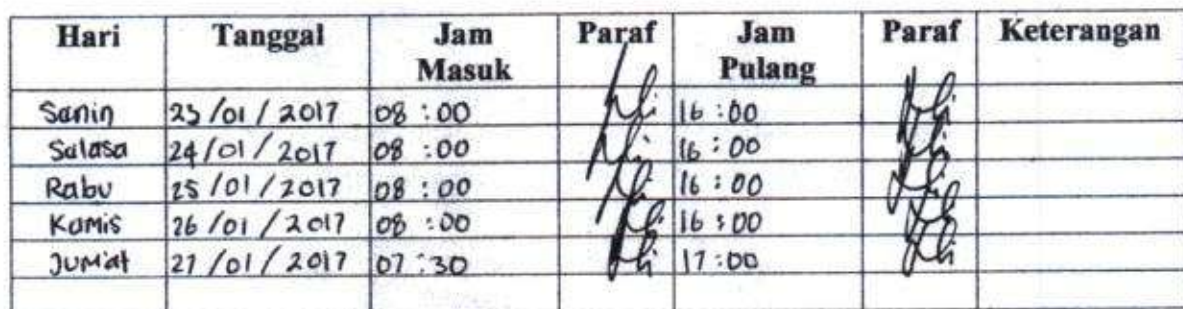 Hari Tanggal Jam Masuk Paraf Jam Pulang Paraf Keterangan
Senin 23/01/2017 08:00 16:00
Selasa 24/01/2017 08:00 16:00
Rabu 25/01/2017 08:00 16:00
Kamis 26/01/2017 08:00 16:00
Jum'at 27/01/2017 07:30 17:00